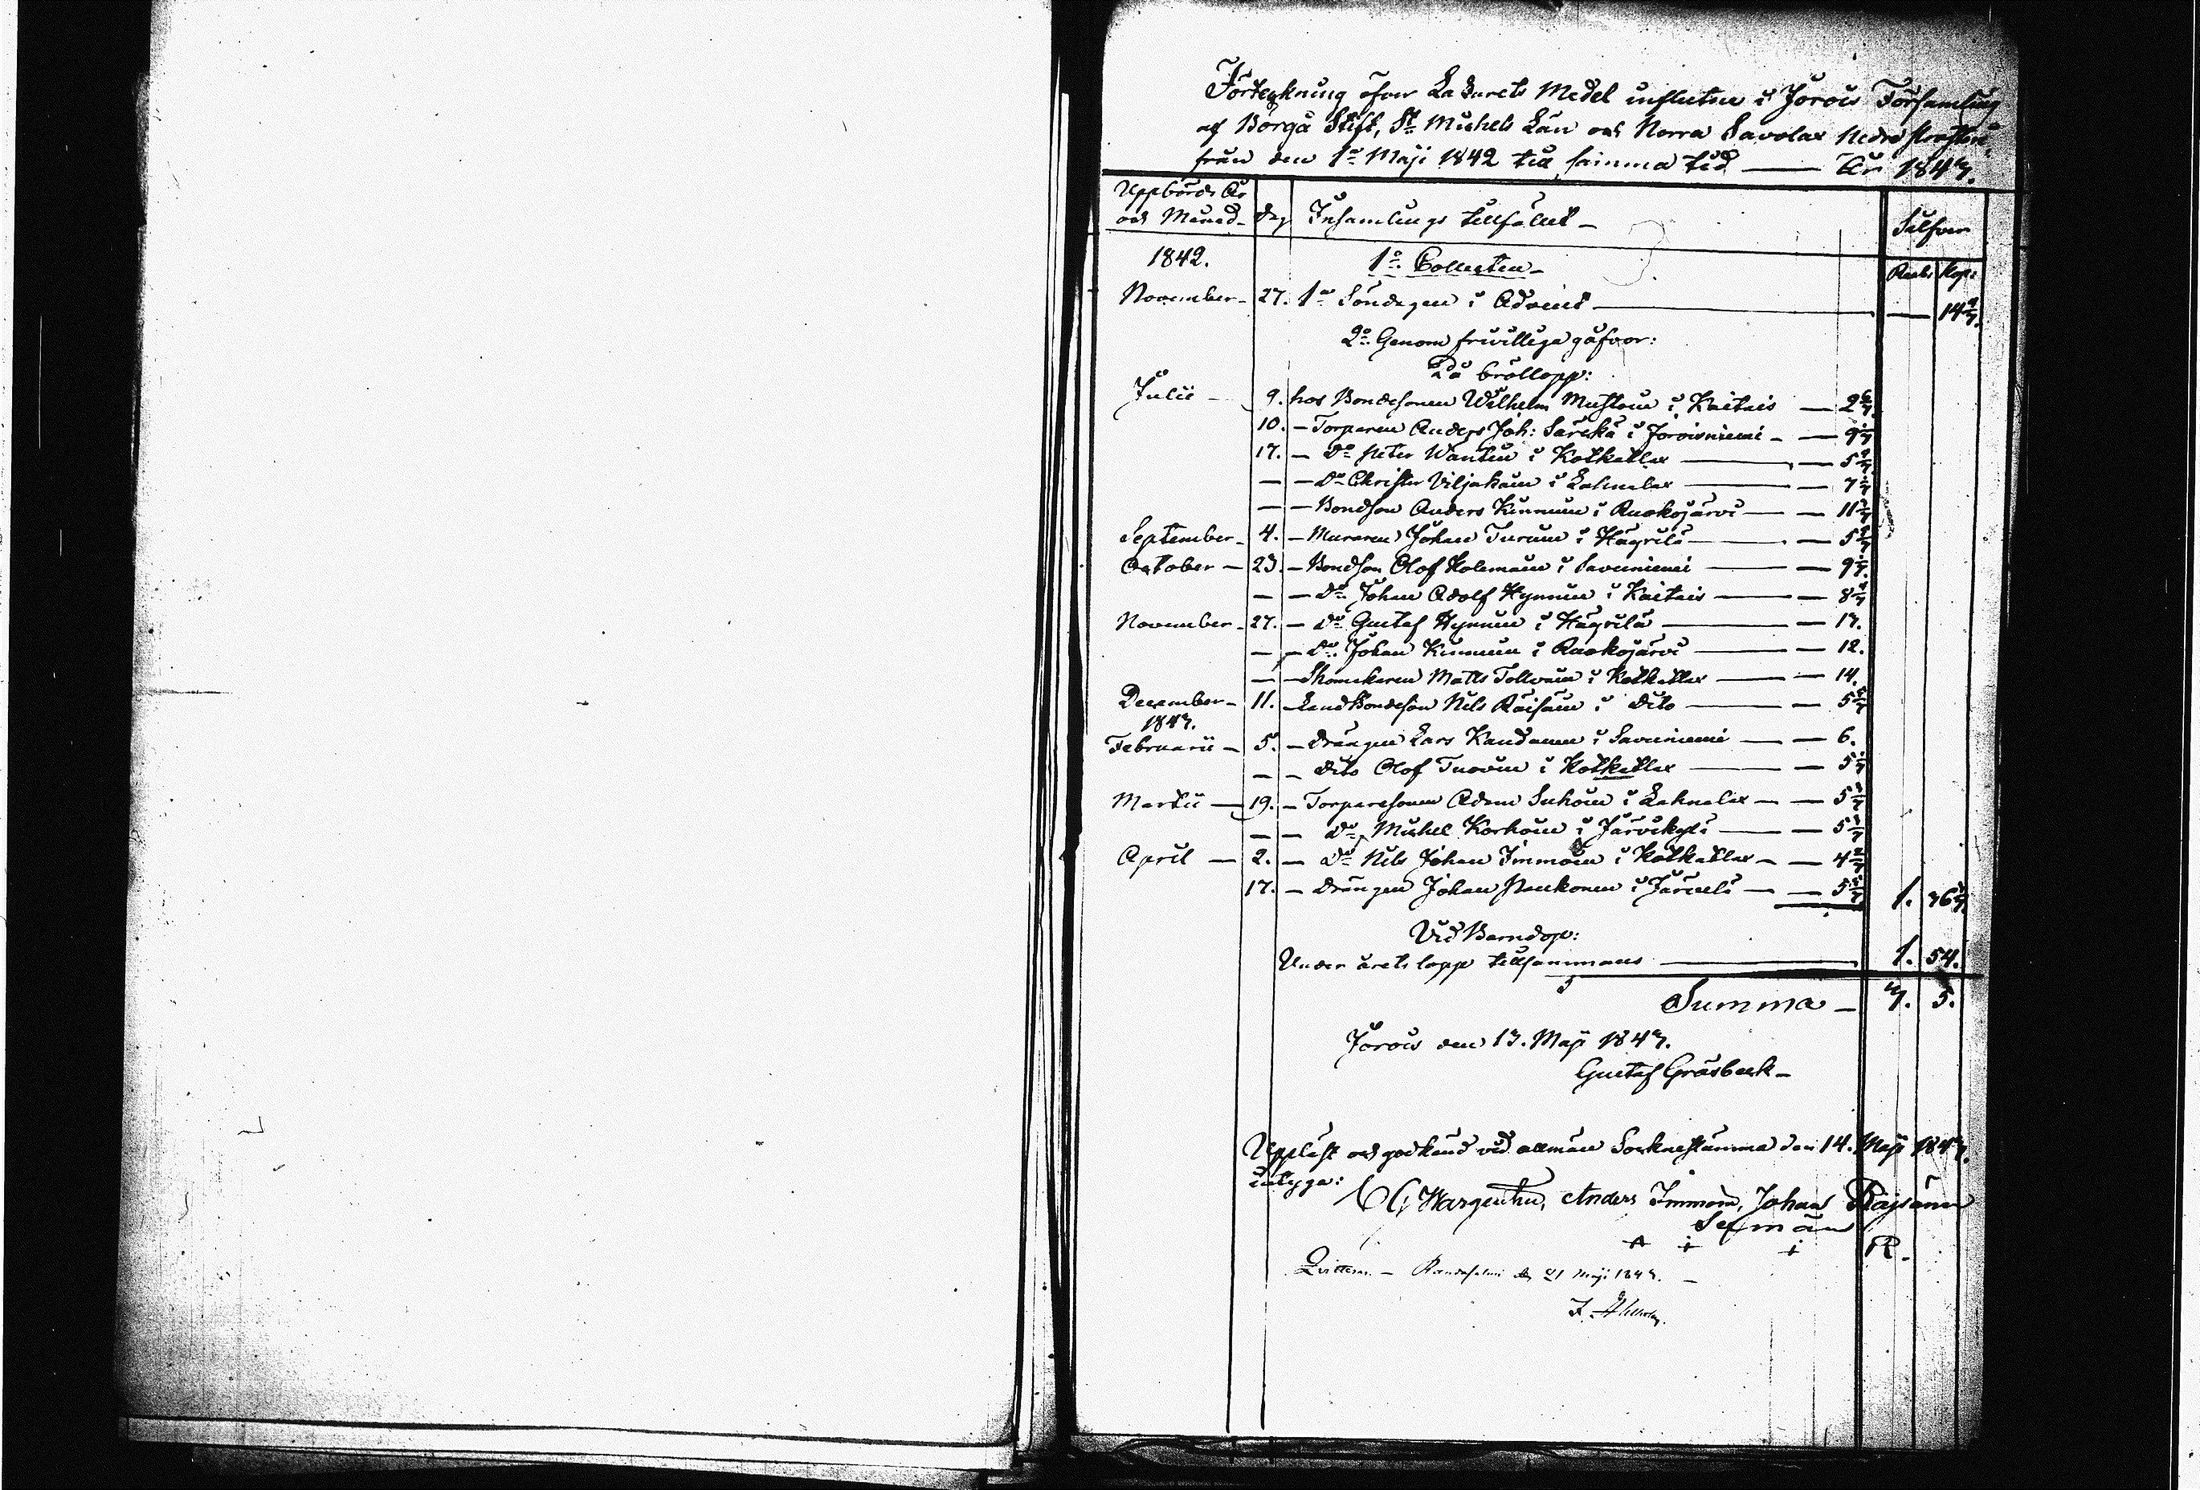 Förteckning öfver Lazarets Medel influtne i Jorois Församling
af Borgå Stift, St Michels Län och Norra Savolax Nedre Prosteri,
från den 1a Maji 1842 till samma tid — År 1843.
Uppbörds År och Månad — Dag Insamlings tillfället — Silfver
Rub. Kop.
1842. 1o Collecten —
November — 27. 1a Söndagen i Advent — 14 2/7.
2o Genom frivilliga gåfvor:
På bröllopp:
Julii — 9. hos Bondesonen Wilhelm Mustoin i Kaitais — 2 6/7.
10. — Torparen Anders Joh: Särckä i Joroisniemi — 9 1/7
17. — Do Peter Wantin i Kotkatlax — 5 5/7
— — Do Christer Viljakain i Lahnalax — 7 1/7
— — Bondson Anders Kinnuin i Ruokojärvi — 11 3/7
September — 4. — Muraren Johan Turuin i Häyrilä — 5 5/7
October — 23. — Bondson Olof Kolemain i Savuniemi — 9 1/7.
— — Do Johan Adolf Hynnin i Kaitais — 8 4/7
November — 27. — Do Gustaf Hynnin i Häyrilä — 13.
— — Do Johan Kinnuin i Ruokojärvi — 12.
— — Skomakaren Matts Tollvain i Kotkatlax — 14.
December — 11. — Landbondeson Nils Räisäin i Dito — 5 5/7
1843.
Februarii — 5. — Drängen Lars Kaudanen i Savuniemi — 6.
— — Dito Olof Tuovin i Kotkatlax — 5 1/7
Martii — 19. — Torparesonen Adam Suhoin i Lahnalax — 5 5/7
— — Do Michel Korhoin i Järvikylä — 5 5/7
April — 2. — Do Nils Johan Immoin i Kotkatlax — 4 2/7
17. — Drängen Johan Paukonen i Järvelä — 5 5/7 1. 36 5/7.
Vid Barndop:
Under årets lopp tillsammans — 1. 54.
Summa — 3. 5.
Jorois den 13. Maji 1843.
Gustaf Gräsbeck —
Uppläst och godkänd vid allmän Socknestämma den 14. Maji 1843.
intyga:
C G Wargentin, Anders Immoin, Johan Räisänen
Sexmän
R.
Qvitteras. — Randasalmi den 21 Maji 1843. —